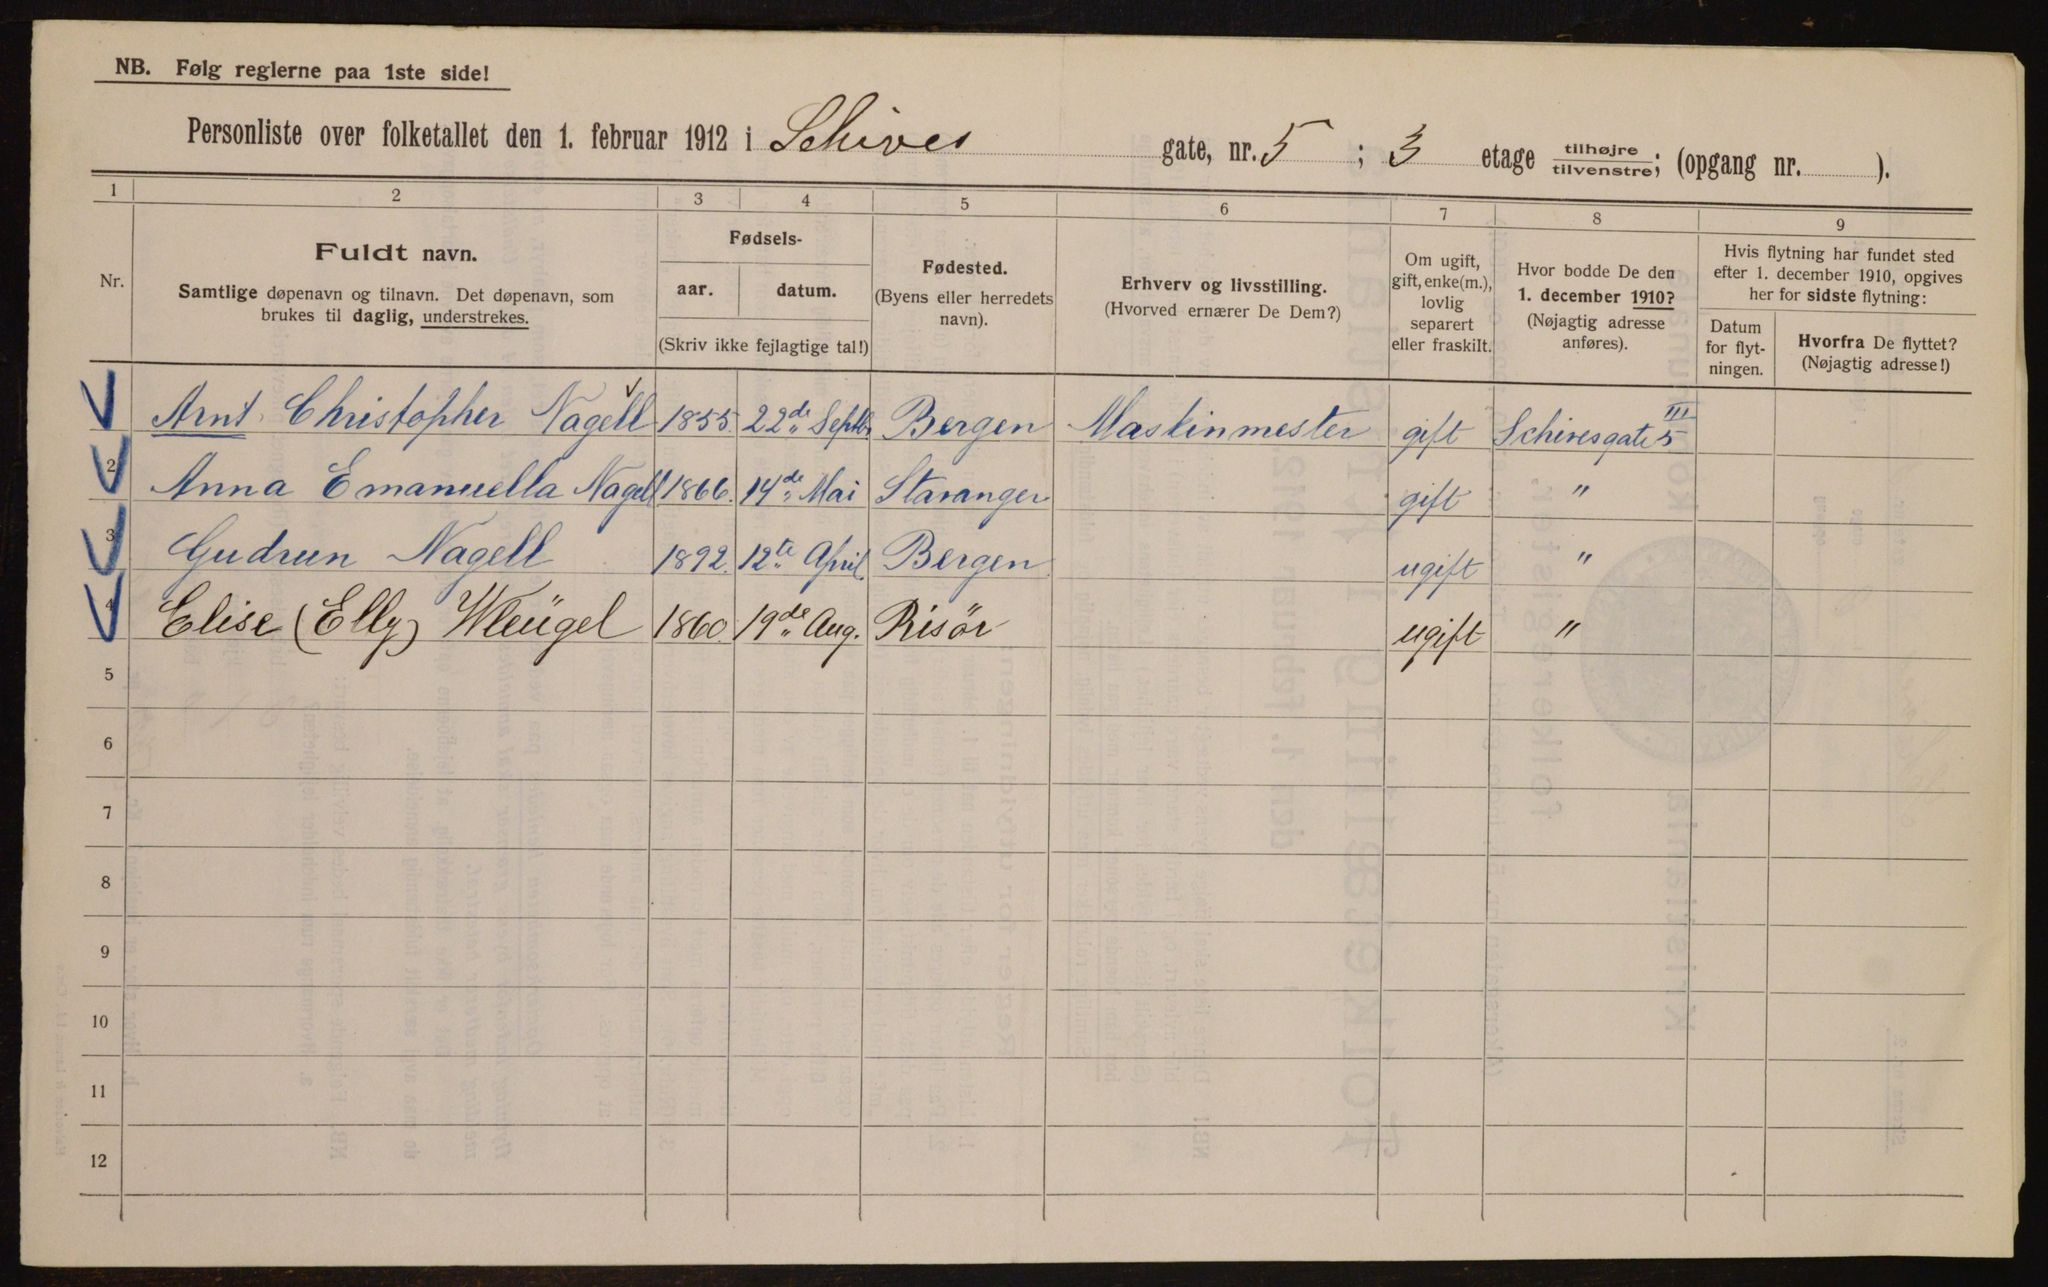 NB. Følg reglerne paa 1ste side!
Personliste over folketallet den 1. februar 1912 i Schives gate, nr. 5 ; 3 etage tilhøjre/tilvenstre; (opgang nr. ).
1 2 3 4 5 6 7 8 9
Nr.
Fuldt navn.
Samtlige døpenavn og tilnavn. Det døpenavn, som
brukes til daglig, understrekes.
Fødsels-
aar. datum.
(Skriv ikke fejlagtige tal!)
Fødested.
(Byens eller herredets
navn).
Erhverv og livsstilling.
(Hvorved ernærer De Dem?)
Om ugift,
gift, enke(m.),
lovlig
separert
eller fraskilt.
Hvor bodde De den
1. december 1910?
(Nøjagtig adresse
anføres).
Hvis flytning har fundet sted
efter 1. december 1910, opgives
her for sidste flytning:
Datum
for flyt-
ningen.
Hvorfra De flyttet?
(Nøjagtig adresse!)
Arnt Christopher Nagell 1855. 22de Septb. Bergen Maskinmester gift Schivesgate 5 III
2 Anna Emanuella Nagell 1866. 14de Mai Stavanger gift "
3 Gudrun Nagell 1892. 12te April. Bergen ugift "
4 Elise (Elly) Wleügel 1860. 19de Aug. Risör ugift "
5
6
7
8
9
10
11
12